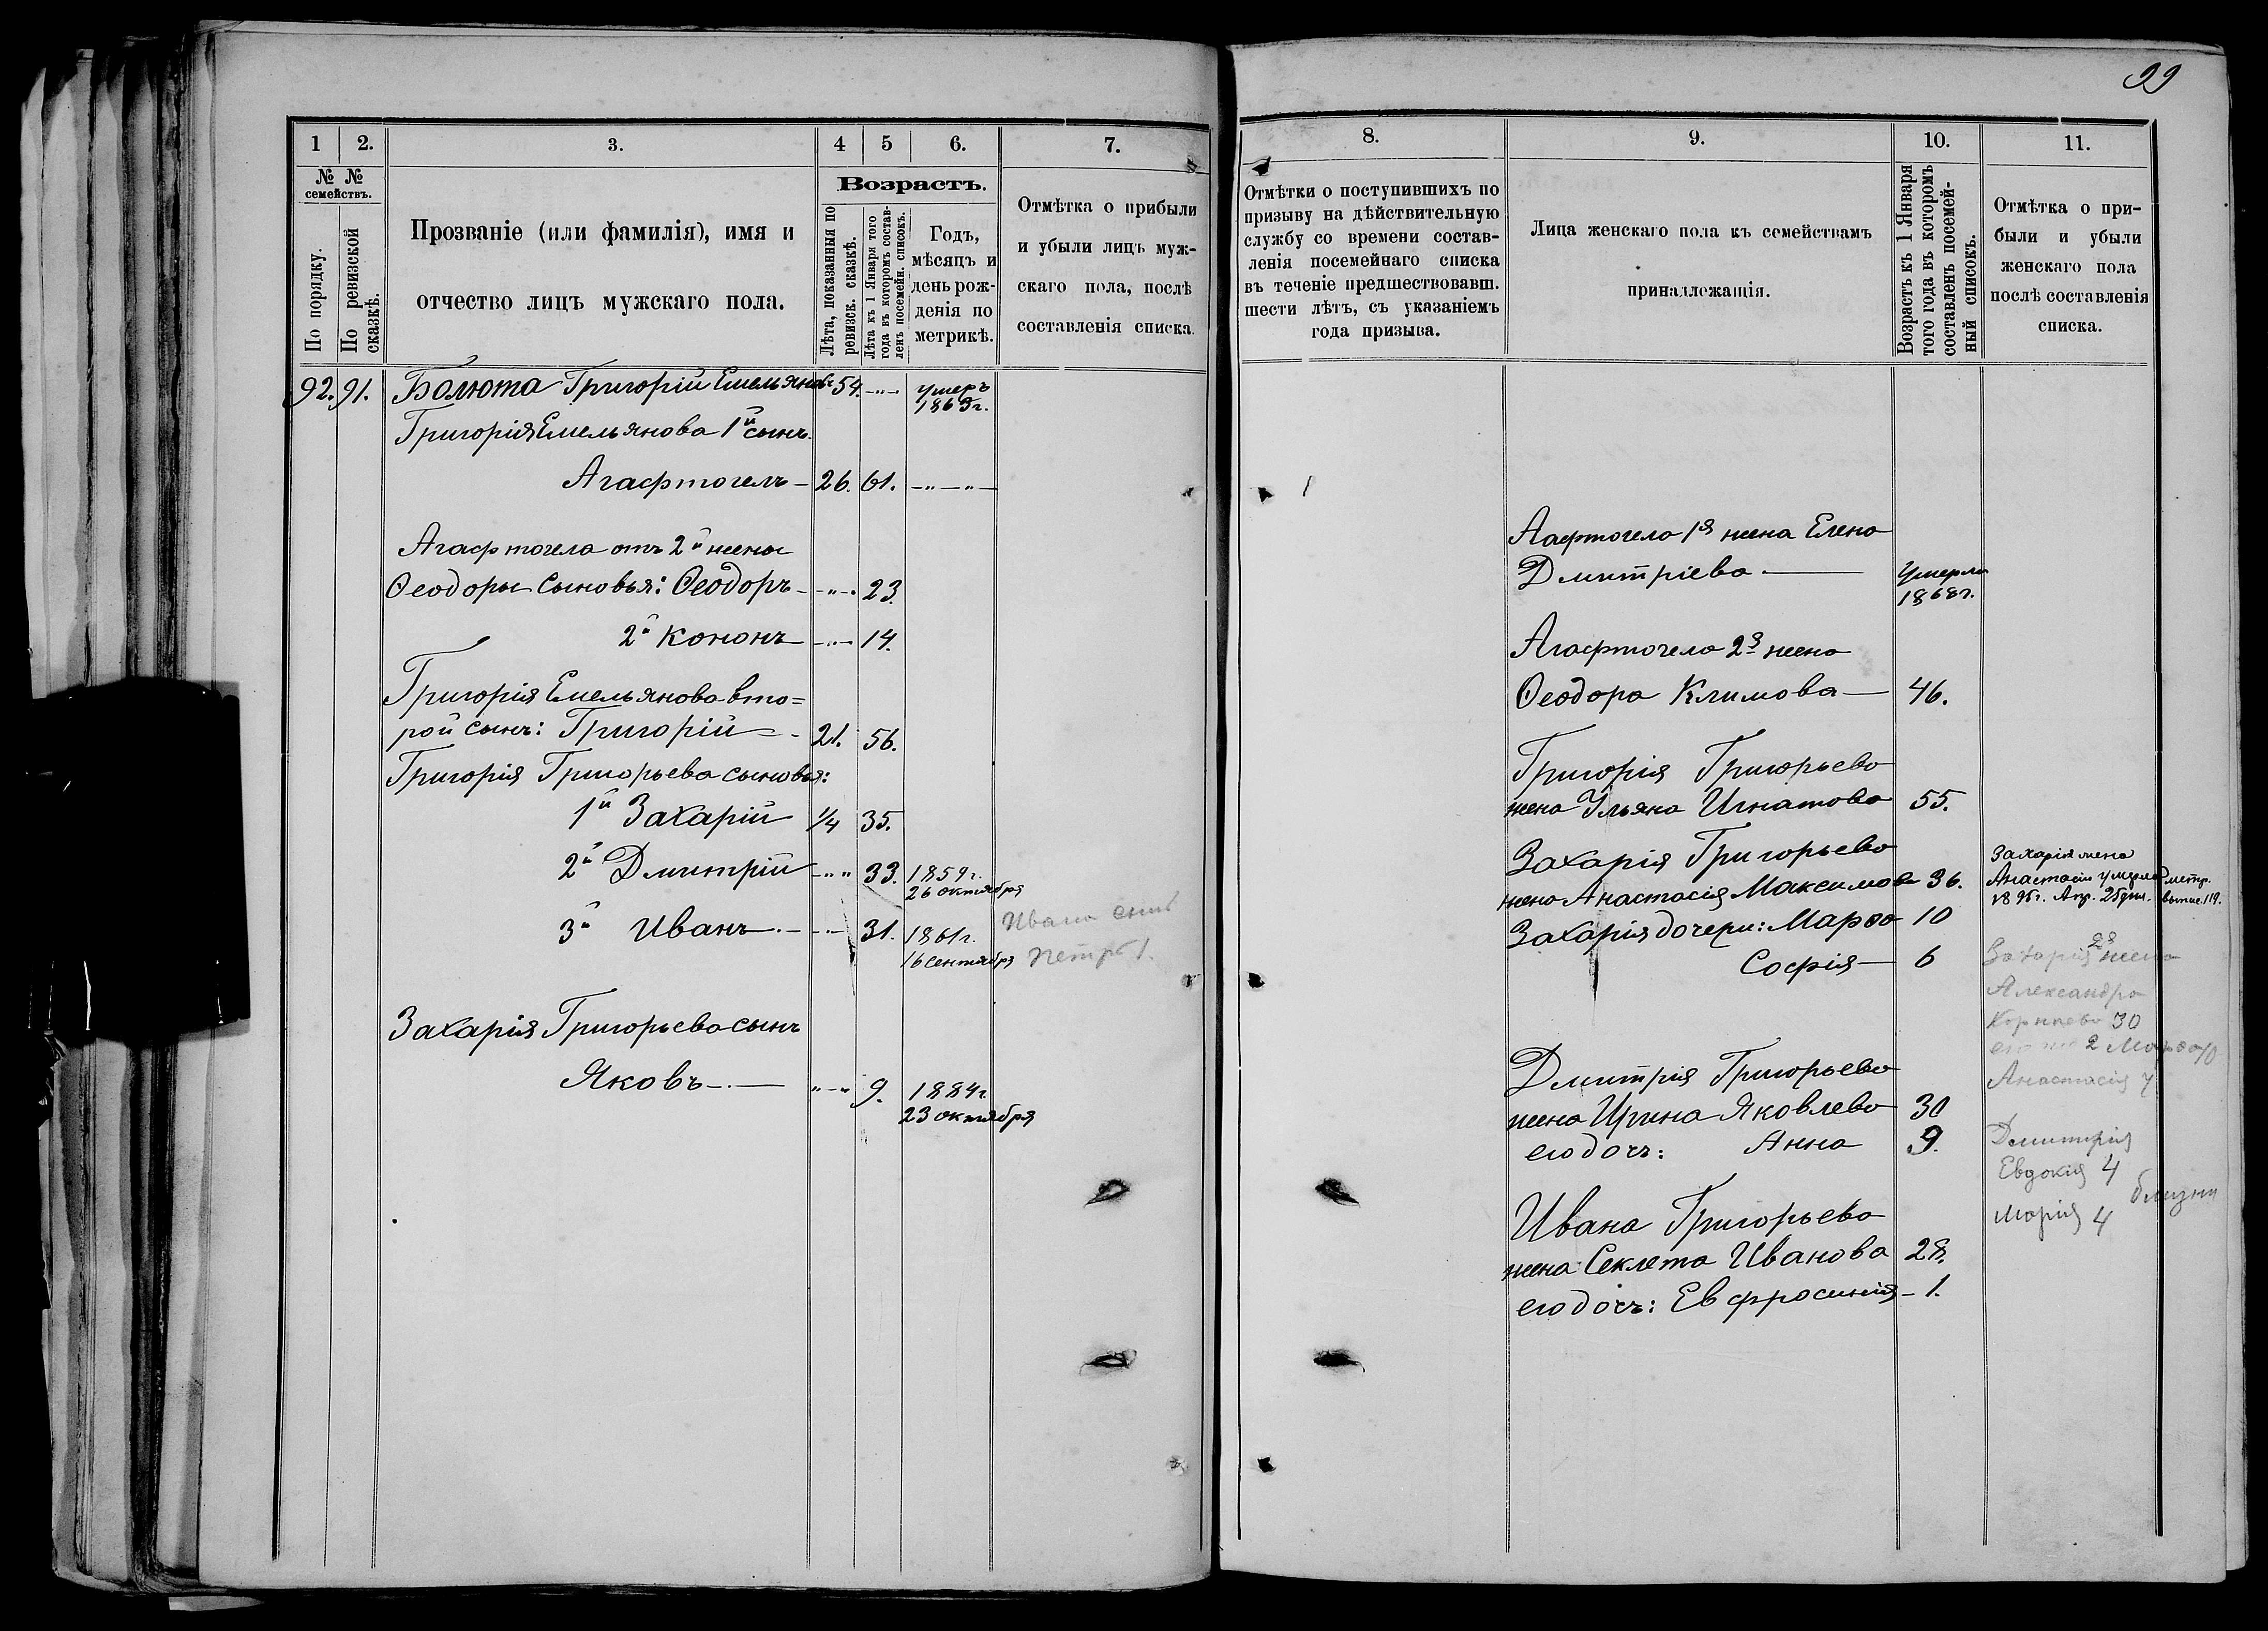 99
1 2. 3. 4 5 6. 7.
№ № семействъ.
По порядку.
По ревизской сказкѣ.
Прозваніе (или фамилія), имя и
отчество лицъ мужскаго пола.
Возрастъ.
Лѣта, показанныя по ревизск. сказкѣ.
Лѣта къ 1 Января того года въ которомъ составленъ посемейн. списокъ.
Годъ,
мѣсяцъ и
день рож-
денія по
метрикѣ.
Отмѣтка о прибыли
и убыли лицъ муж-
скаго пола, послѣ
составленія списка.
92. 91. Болюта Григорій Емельяновъ 54. умеръ
1863г.
Григорія Емельянова 1й сынъ
Агафтогелъ 26. 61.
Агафтогела отъ 2й жены
Ѳеодоры сыновья: Ѳеодоръ 23.
2й Кононъ 14.
Григорія Емельянова вто=
рой сынъ: Григорій 21. 56.
Григорія Григорьева сыновья:
1й Захарій 1/4 35.
2й Дмитрій 33. 1859г.
26 октября
3й Иванъ 31. 1861г.
16 сентября
Ивана сынъ
Петръ 1.
Захарія Григорьева сынъ
Яковъ 9. 1884г
23 октября
8. 9. 10. 11.
Отмѣтки о поступившихъ по
призыву на дѣйствительную
службу со времени состав-
ленія посемейнаго списка
въ теченіе предшествовавш.
шести лѣтъ, съ указаніемъ
года призыва.
Лица женскаго пола къ семействамъ
принадлежащія.
Возрастъ къ 1 Января
того года въ которомъ
составленъ посемей-
ный списокъ.
Отмѣтка о при-
были и убыли
женскаго пола
послѣ составленія
списка.
Аафтогела 1я жена Елена
Дмитріева Умерла
1868г.
Агафтогела 2я жена
Ѳеодора Климова 46.
Григорія Григорьева
жена Ульяна Игнатова 55.
Захарія Григорьева
жена Анастасія Максимова 36.
Захарія дочери: Марѳа 10
Софія 6
Захарія жена
Анастасія умерла
1895г. Апр. 25 дня.
метр.
выпис. 119.
Захарія 2я жена
Александра
Корнѣева 30
2 Марѳа 10
Анастасія 7
Дмитрія Григорьева
жена Ирина Яковлева 30
его дочь: Анна 9.
Дмитрія
Евдокія 4
Марія 4
близни
Ивана Григорьева
жена Секлета Иванова 28.
его дочь: Евфросинія 1.